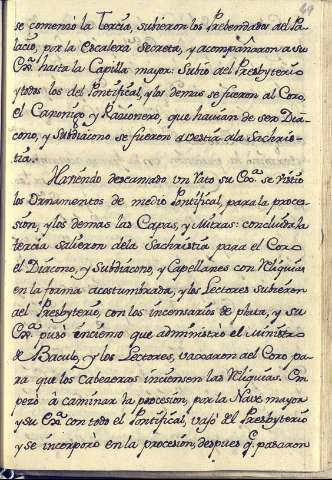 69
se comenzó la Tercia, subieron los Prebendados del Pa-
lacio, por la Escalera Secreta, y acompañaron a su
Exª. hasta la Capilla mayor. Subio al Presbyterio
y todos los del Pontifical, y los demas se fueron al Coro,
el Canonigo y Razionero, que havian de ser Dia-
cono, y Subdiacono se fueron a vestir ala Sachris-
tia.
Haviendo descansado vn rato su Exª. se vistio
los Ornamentos de medio Pontifical, para la proce-
sion, y los demas las Capas, y Mitras: concluida la
tercia salieron dela Sachristia para el Coro
el Diacono, y Subdiacono, y Capellanes con Reliquias
en la forma acostumbrada, y los Lectores subieron
al Presbyterio, con los incensarios de plata, y su
Exª. puso incienso que administró el Ministro
de Baculo, y los Lectores, vaxaron al Coro pa-
ra que los cabezeras inciensen las Reliquias. Em
pezó à caminar la procesion, por la Nave mayor
y su Exª. con todo el Pontifical, vajó del Presbyterio
y se incorporó en la procesion, despues q. pasaron